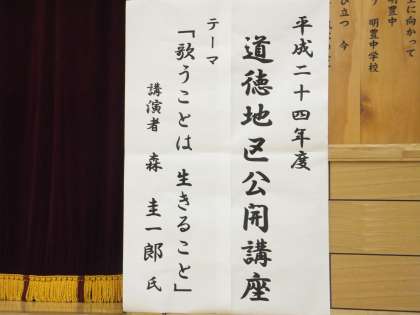 平成二十四年度
道徳地区公開講座
テーマ
「歌うことは 生きること」
講演者 森 圭一郎 氏
に向かって
明豊中
び立つ 今
明豊中学校